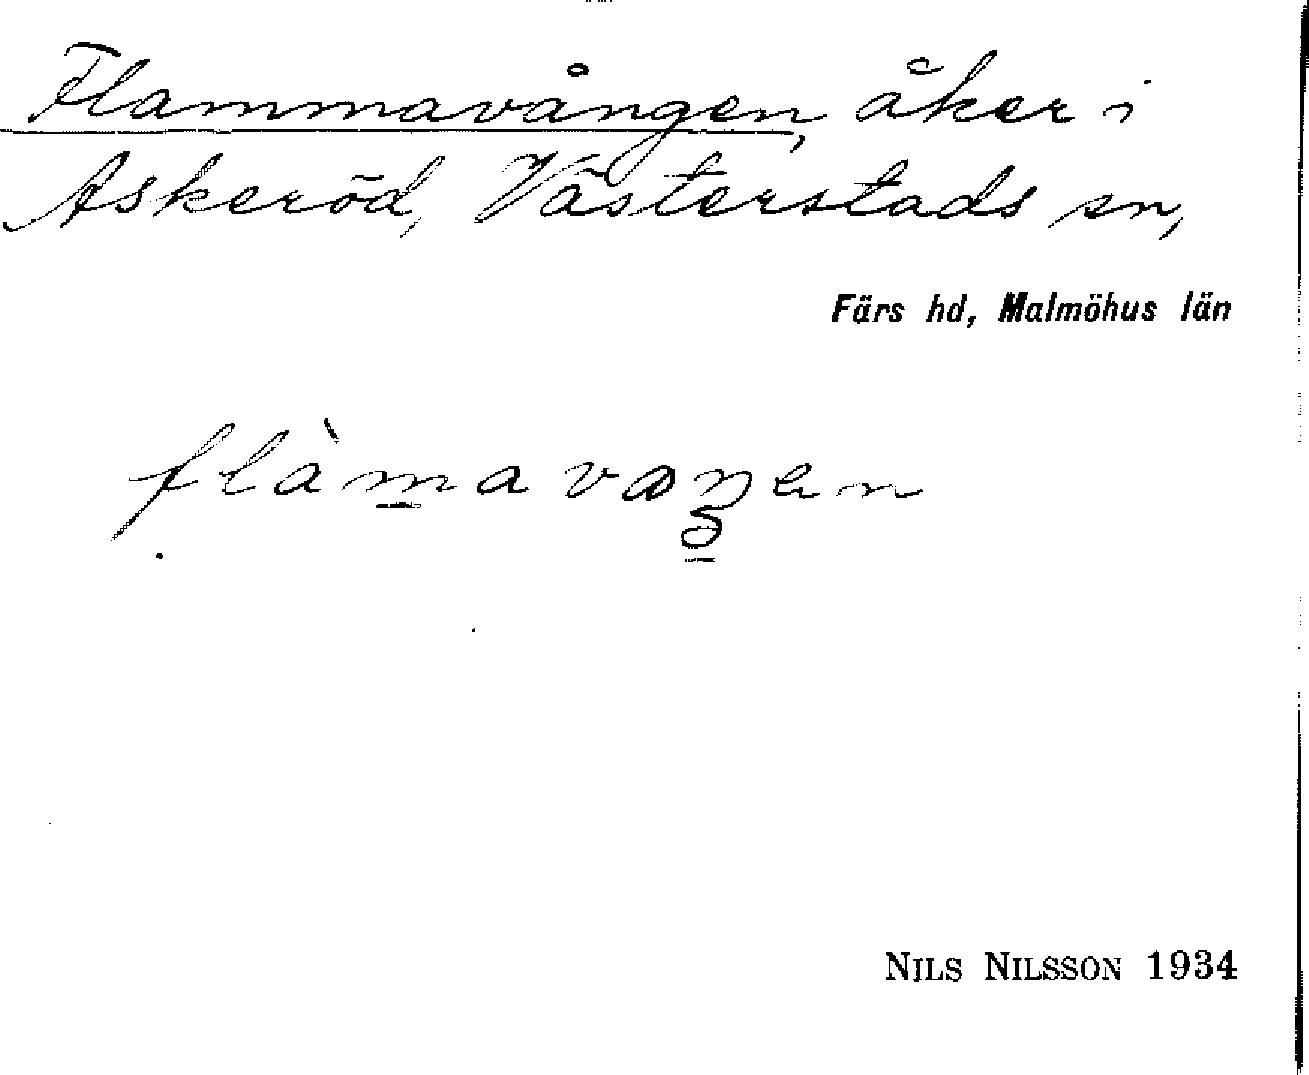 Flammavången, åker i
Askeröd, Västerstads sn,
Färs hd, Malmöhus län
flàmavaŋən
NILS NILSSON 1934